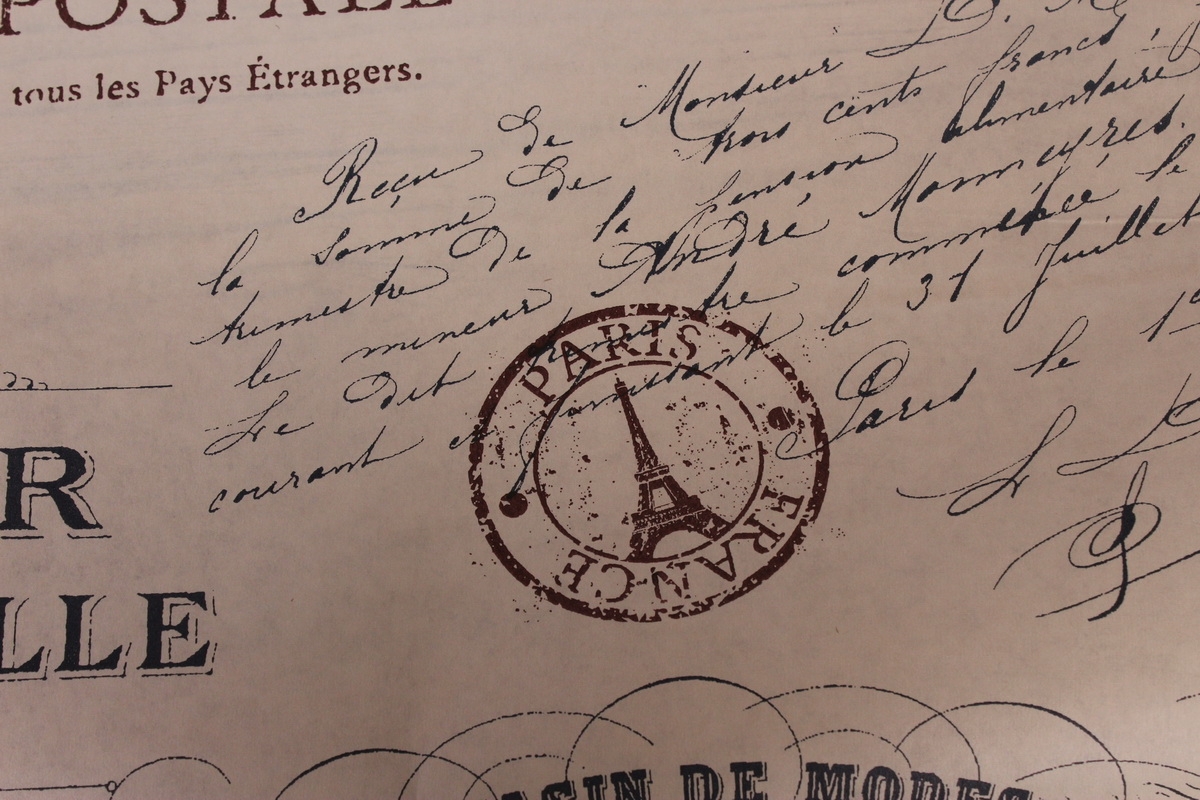 POSTALE
tous les Pays Étrangers.
Reçu de Monsieur D. M
la somme de trois cents francs,
trimestre de la pension alimentaire
le mineur André Monneyres.
Le dit trimestre commencé le
courant et finissant le 31 Juillet
Paris le 1
PARIS
FRANCE
R
LLE
ASIN DE MODES